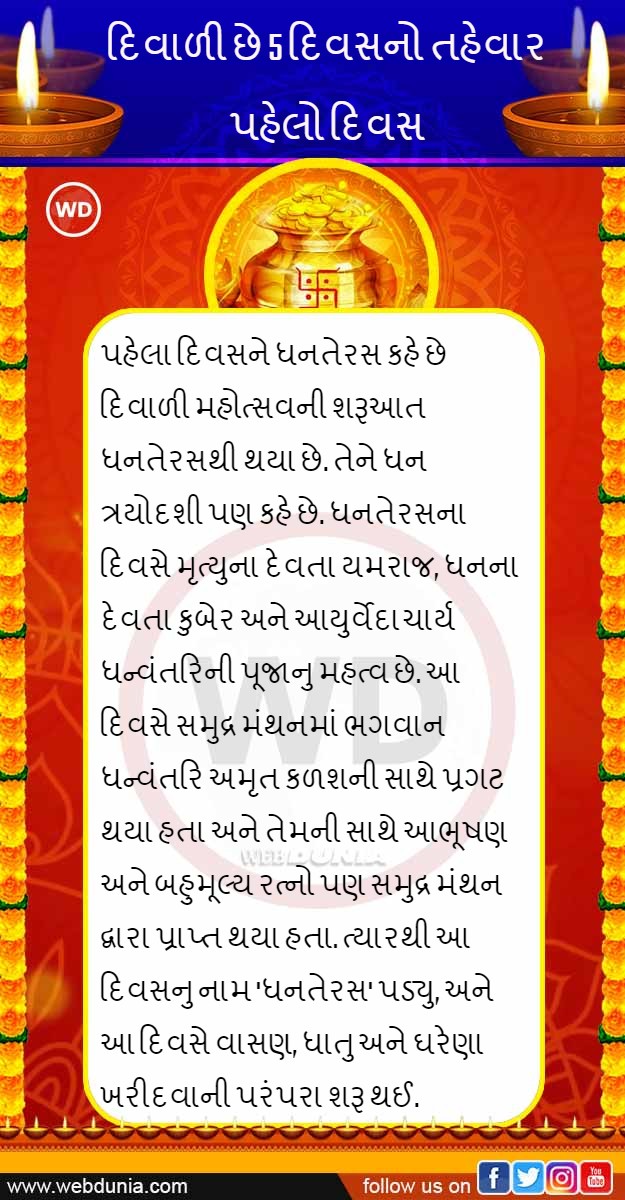 દિવાળી છે 5 દિવસનો તહેવાર
પહેલો દિવસ
WD
પહેલા દિવસને ધનતેરસ કહે છે
દિવાળી મહોત્સવની શરૂઆત
ધનતેરસથી થયા છે. તેને ધન
ત્રયોદશી પણ કહે છે. ધનતેરસના
દિવસે મૃત્યુના દેવતા યમરાજ, ધનના
દેવતા કુબેર અને આયુર્વેદાચાર્ય
ધન્વંતરિની પૂજાનુ મહત્વ છે. આ
દિવસે સમુદ્ર મંથનમાં ભગવાન
ધન્વંતરિ અમૃત કળશની સાથે પ્રગટ
થયા હતા અને તેમની સાથે આભૂષણ
અને બહુમૂલ્ય રત્નો પણ સમુદ્ર મંથન
દ્વારા પ્રાપ્ત થયા હતા. ત્યારથી આ
દિવસનુ નામ 'ધનતેરસ' પડ્યુ, અને
આ દિવસે વાસણ, ધાતુ અને ઘરેણા
ખરીદવાની પરંપરા શરૂ થઈ.
WD
WEBDUNIA
www.webdunia.com
follow us on
You Tube